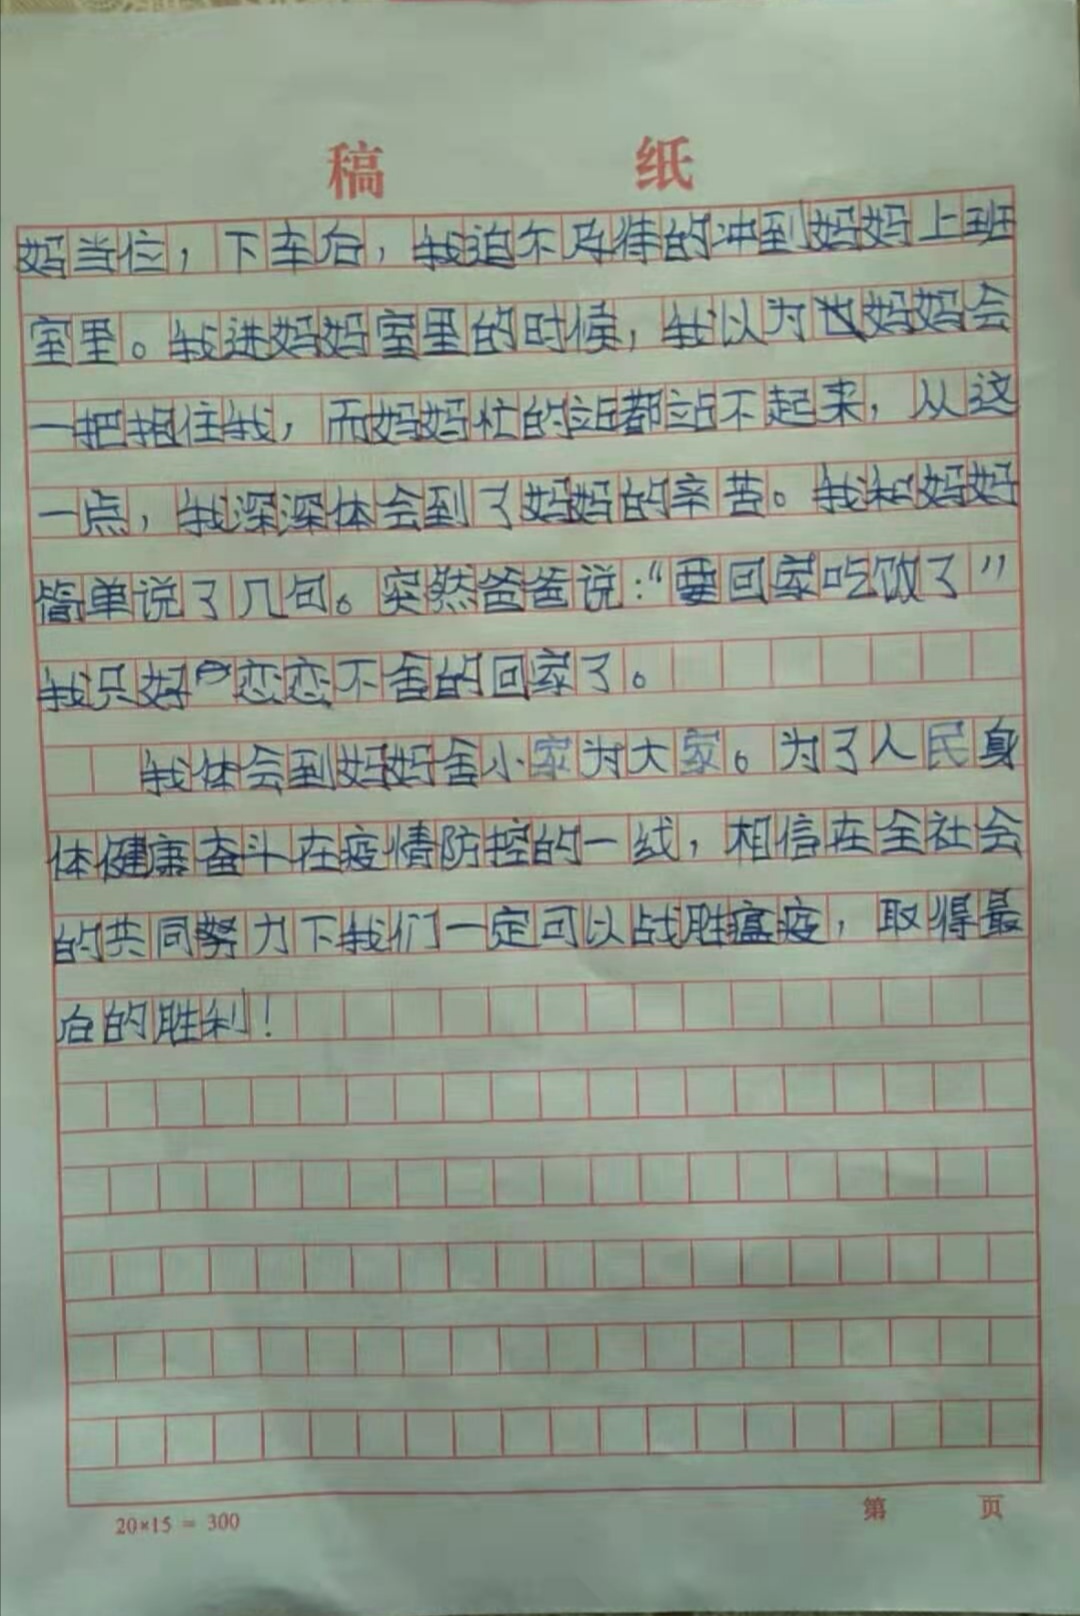 稿 纸
妈当位，下车后，我迫不及待的冲到妈妈上班
室里。我进妈妈室里的时候，我以为妈妈会
一把抱住我，而妈妈忙的站都站不起来，从这
一点，我深深体会到了妈妈的辛苦。我和妈妈
简单说了几句。突然爸爸说：“要回家吃饭了”
我只好恋恋不舍的回家了。
我体会到妈妈舍小家为大家。为了人民身
体健康奋斗在疫情防控的一线，相信在全社会
的共同努力下我们一定可以战胜瘟疫，取得最
后的胜利！
20×15 = 300
第 页